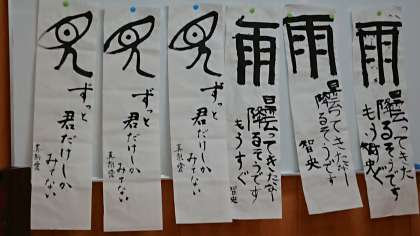 雨
曇ってきたなー
降るそうです
もう
智央
雨
曇ってきたなー
降るそうです
智央
雨
曇ってきたなー
降るそうです
もうすぐ
智央
見
ずっと
君だけしか
みてない
見
ずっと
君だけしか
みてない
見
ずっと
君だけしか
みてない